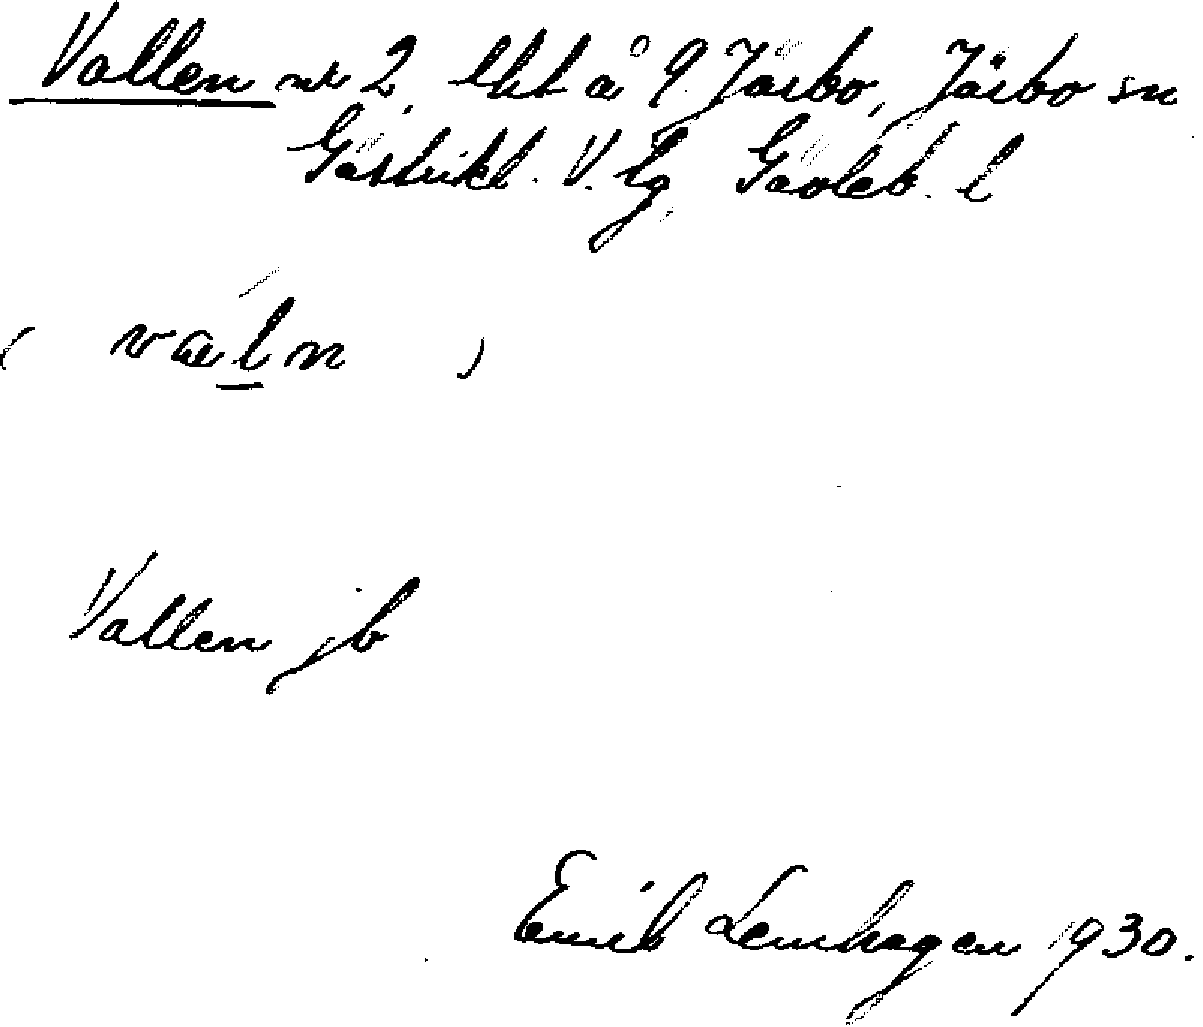 Vallen nr 2, lht å 9 Järbo, Järbo sn
Gästrikl. V. tg, Gävleb. l
( valn )
Vallen jb
Emil Lemhagen 1930.